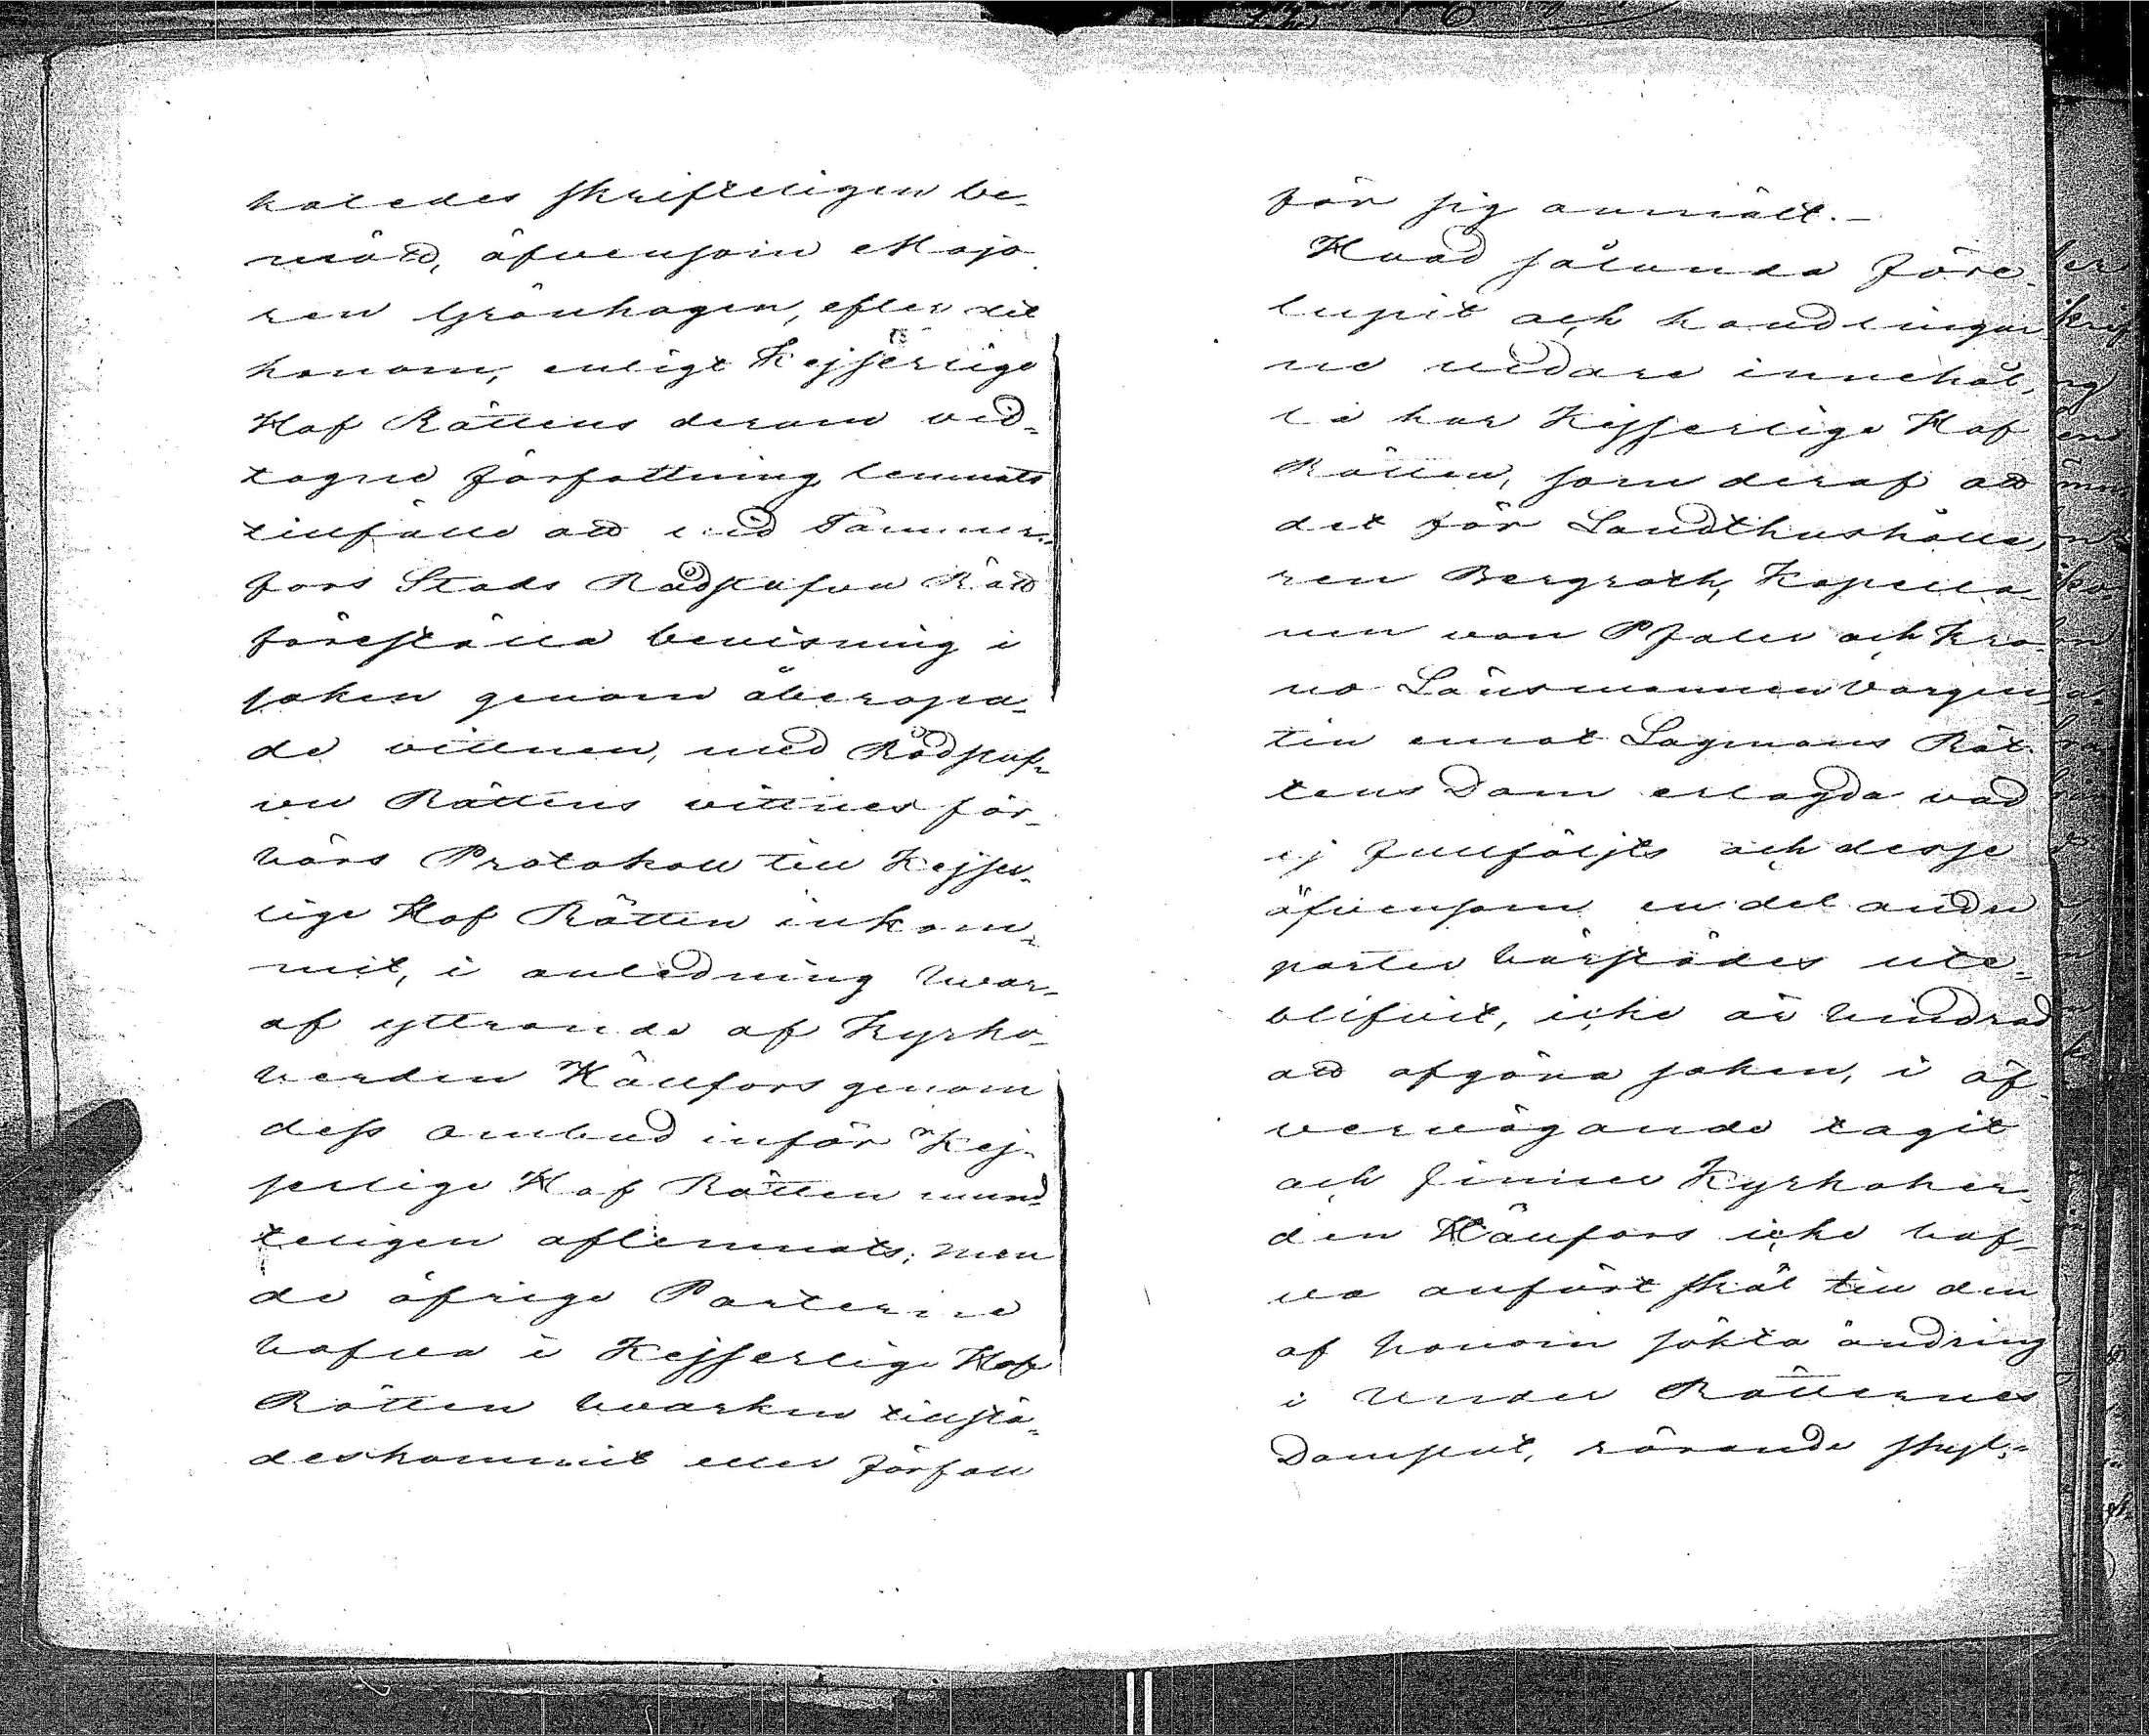 kaledes skrifteligen be-
mött, äfvensom Majo-
ren Grönhagen, efter det
honom, enligt Kejserlige
Hof Rättens derom ved-
tagne författning lemnats
tillfälle att vid Tammer-
fors Stads Rådstufvu Rätt
föreställa bevisning i
saken genom åberopa-
de vittnen, med Rådstuf-
vu Rättens vittnes för-
hörs Protokoll till Kejser-
lige Hof Rätten inkom-
mit, i anledning hvar-
af yttrande af Kyrko-
herden Hällfors genom
dess ombud inför Kej-
serlige Hof Rätten mund-
teligen aflemnats; men
de öfrige Parterne
hafva i Kejserlige Hof
Rätten hvarken tillstä-
deskommit eller förfall
för sig anmält.-
Hvad sålunda före-
lupit och handlingar-
ne vidare innehål-
la har Kejserlige Hof
Rätten, som deraf att
det för Landthushålla-
ren Bergroth, Kapella-
nen von Pfaler och Kro-
no Länsmannen Bargen-
tin emot Lagmans Rät-
tens Dom erlagda vad
ej fullföljts och desse
äfvensom en del andre
parter härstädes ute-
blifvit, icke är hindrad
att afgöra saken, i öf-
vervägande tagit
och finner Kyrkoher-
den Hällfors icke haf-
va anfört skäl till den
af honom sökta ändring
i Under Rätternes
Domslut, rörande skyl-